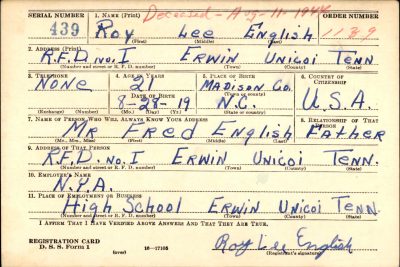 SERIAL NUMBER 1. NAME (Print) Deceased - Aug-11-1944 ORDER NUMBER
439 Roy Lee English 1189
(First) (Middle) (Last)
2. ADDRESS (Print)
R.F.D. No. I Erwin Unicoi Tenn.
(Number and street or R. F. D. number) (Town) (County) (State)
3. TELEPHONE 4. AGE IN YEARS 5. PLACE OF BIRTH 6. COUNTRY OF CITIZENSHIP
None 21 Madison Co.
DATE OF BIRTH (Town or county)
8-28-19 N.C. U.S.A.
(Exchange) (Number) (Mo.) (Day) (Yr.) (State or country)
7. NAME OF PERSON WHO WILL ALWAYS KNOW YOUR ADDRESS 8. RELATIONSHIP OF THAT PERSON
Mr Fred English Father
(Mr., Mrs., Miss) (First) (Middle) (Last)
9. ADDRESS OF THAT PERSON
R.F.D. No. I Erwin Unicoi Tenn.
(Number and street or R. F. D. number) (Town) (County) (State)
10. EMPLOYER'S NAME
N.Y.A.
11. PLACE OF EMPLOYMENT OR BUSINESS
High School Erwin Unicoi Tenn.
(Number and street or R. F. D. number) (Town) (County) (State)
I AFFIRM THAT I HAVE VERIFIED ABOVE ANSWERS AND THAT THEY ARE TRUE.
REGISTRATION CARD
D. S. S. Form 1 (over) 16-17105 Roy Lee English
(Registrant's signature)